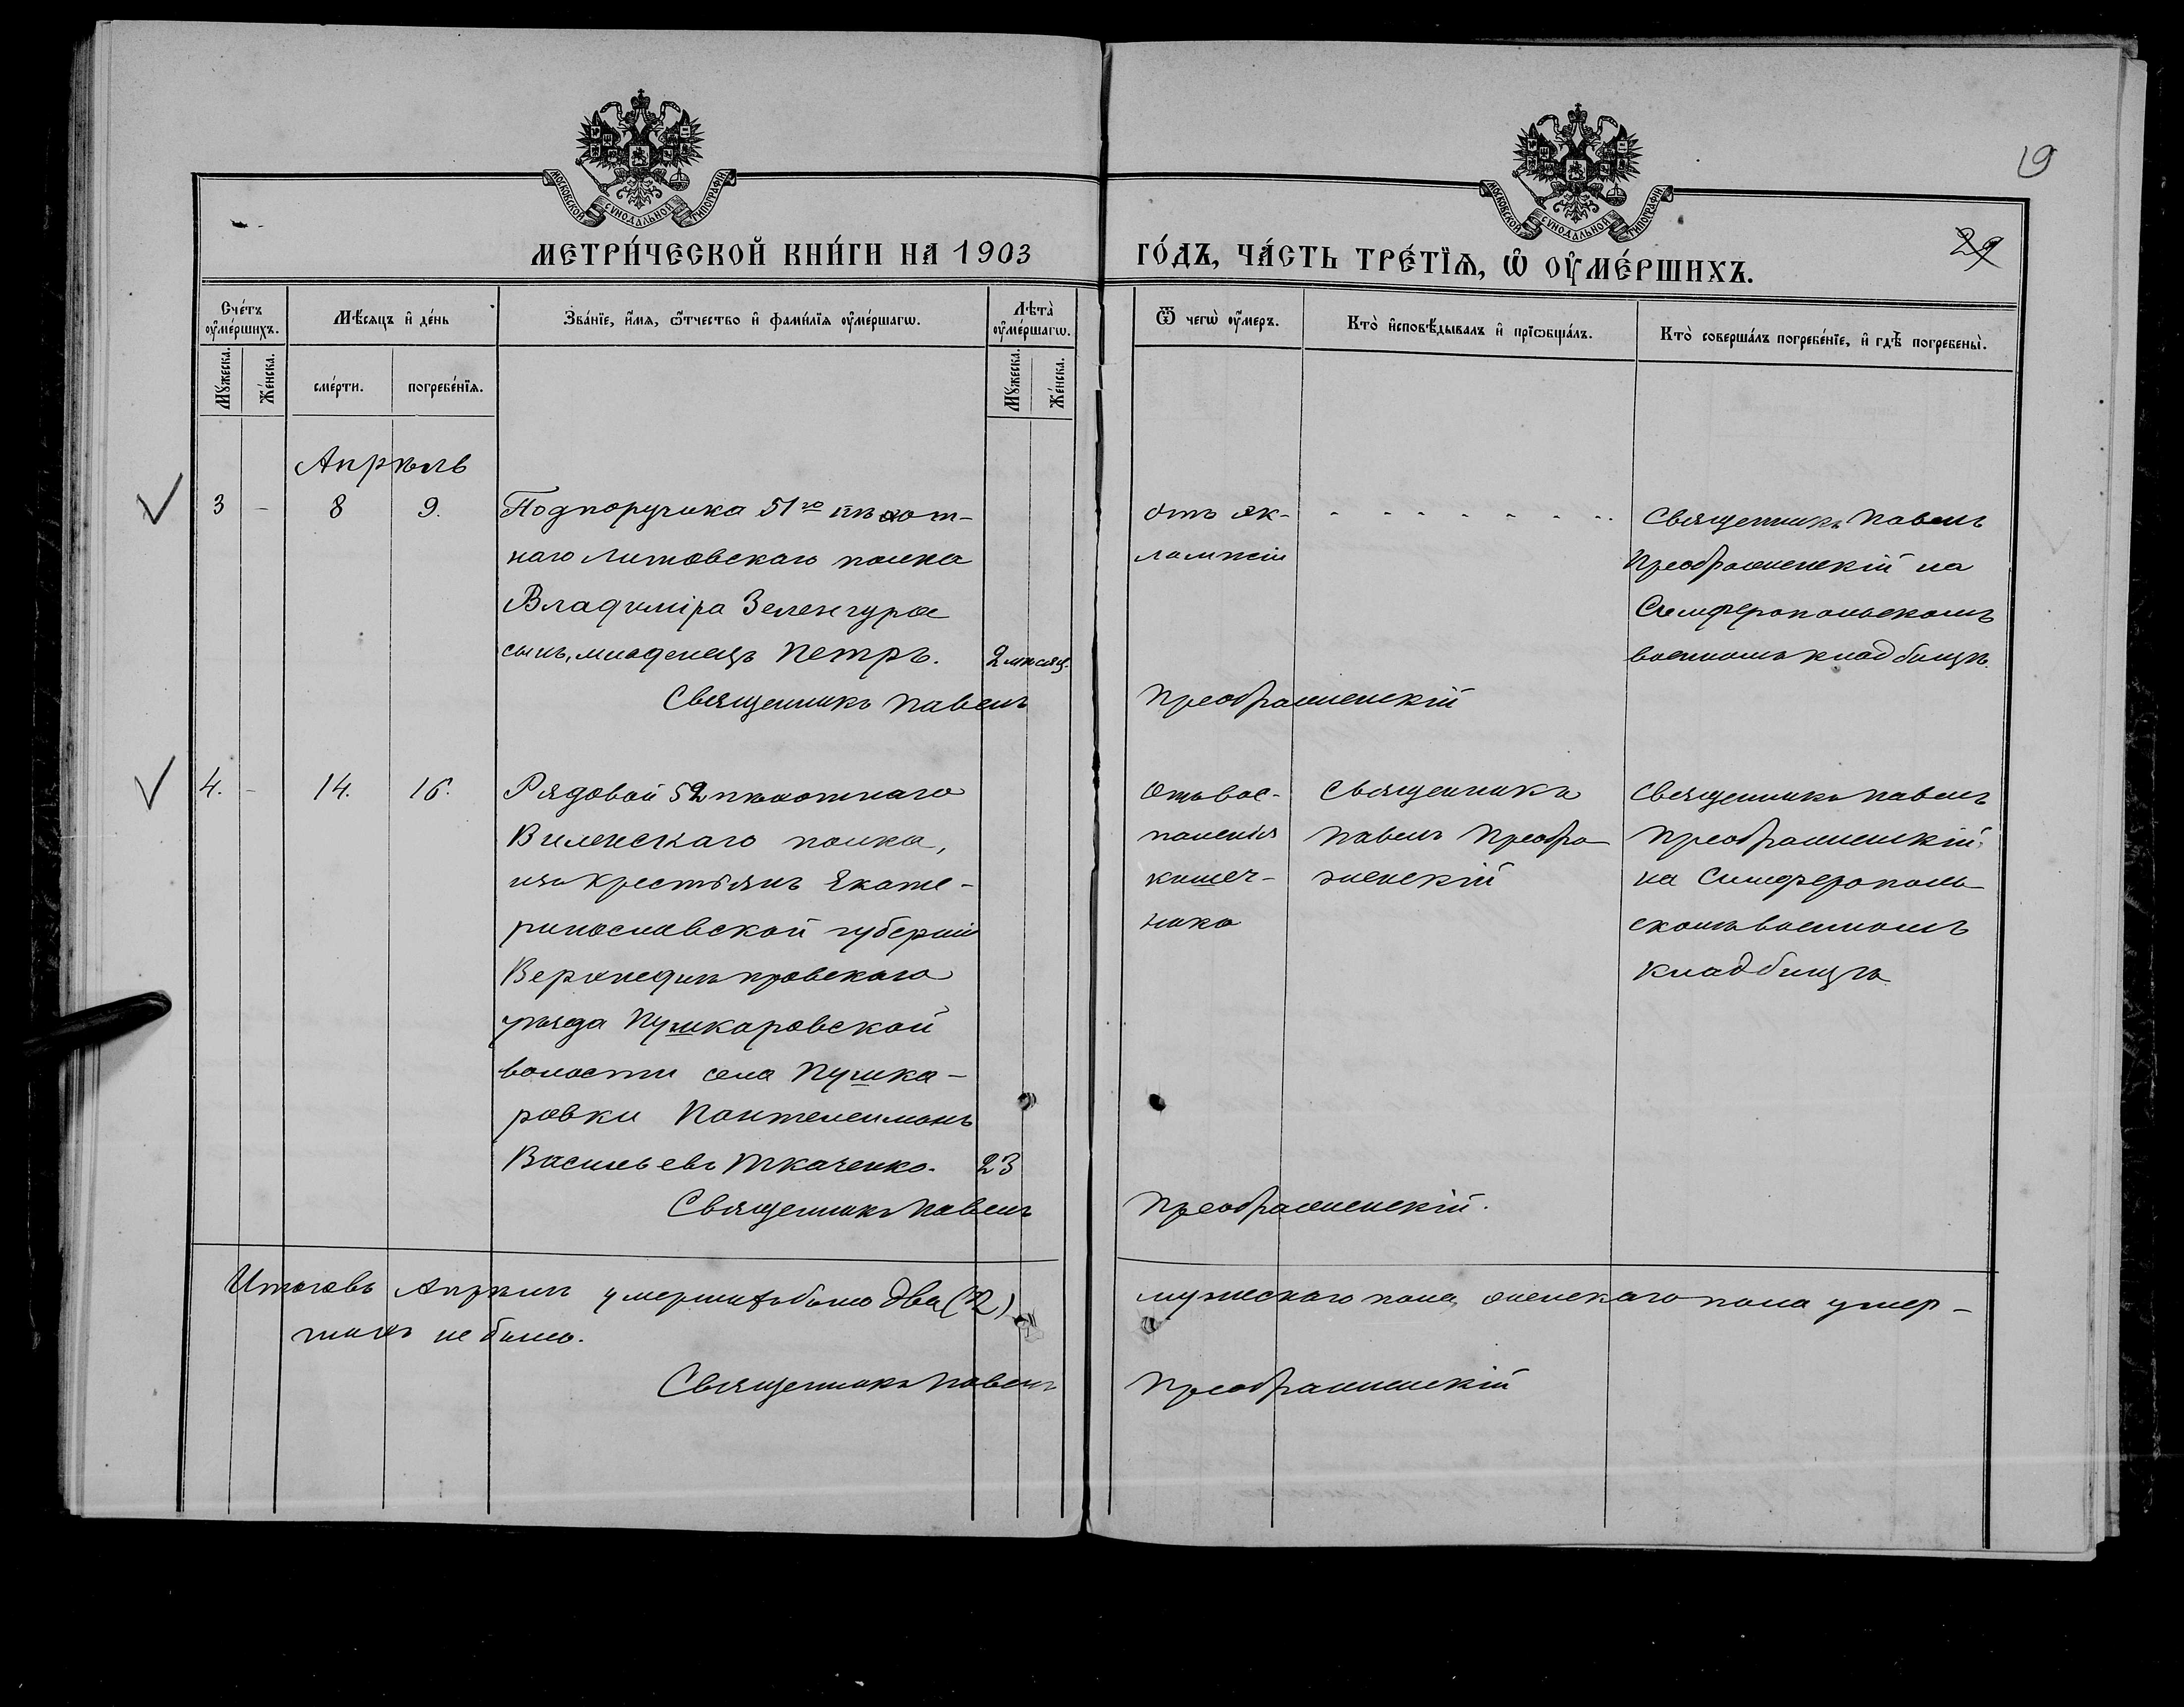 МОСКОВСКОЙ СѴНОДАЛЬНОЙ ТИПОГРАФІИ
МОСКОВСКОЙ СѴНОДАЛЬНОЙ ТИПОГРАФІИ
19
29
МЕТРИ́ЧЕСКОЙ КНИ́ГИ НА 1903
ГО́ДЪ, ЧА́СТЬ ТРЕ́ТЇѦ, Ѡ҆ ОУ҆МЕ́РШИХЪ.
Сче́тъ оу҆ме́ршихъ.
Мѣ́сяцъ и҆ де́нь
Зва́нїе, и҆́мя, ѻ҆́тчество и҆ фами́лїя оу҆ме́ршагѡ.
Лѣта̀ оу҆ме́ршагѡ.
Ѿ чегѡ̀ оу҆́меръ.
Кто̀ и҆сповѣ́дывалъ и҆ прїѡбща́лъ.
Кто̀ соверша́лъ погребе́нїе, и҆ гдѣ̀ погребены̀.
Мꙋ́жеска.
Же́нска.
сме́рти.
погребе́нїя.
Мꙋ́жеска.
Же́нска.
Апрѣль
3 - 8 9. Подпоручика 51го пѣхот-
наго Литовскаго полка
Владиміра Зеленгура
сынъ, младенецъ Петръ. 2 мѣсяц.
отъ эк-
лампсіи
Священникъ Павелъ
Преображенскій на
Симферопольскомъ
военномъ кладбищѣ.
Священникъ Павелъ Преображенскій
4. - 14. 16. Рядовой 52 пѣхотнаго
Виленскаго полка,
изъ крестьянъ Екате-
ринославской губерніи
Верхнеднѣпровскаго
уѣзда Пушкаровской
волости села Пушка-
ровки Пантелеимонъ
Васильевъ Ткаченко. 23
Отъ вос-
паленія
кишеч-
ника
Священникъ
Павелъ Преобра-
женскій
Священникъ Павелъ
Преображенскій,
на Симферополь-
скомъ военномъ
кладбищѣ
Священникъ Павелъ Преображенскій.
Итого въ Апрѣлѣ умершихъ было два (2) мужескаго пола, женскаго пола умер-
шихъ не было.
Священникъ Павелъ Преображенскій